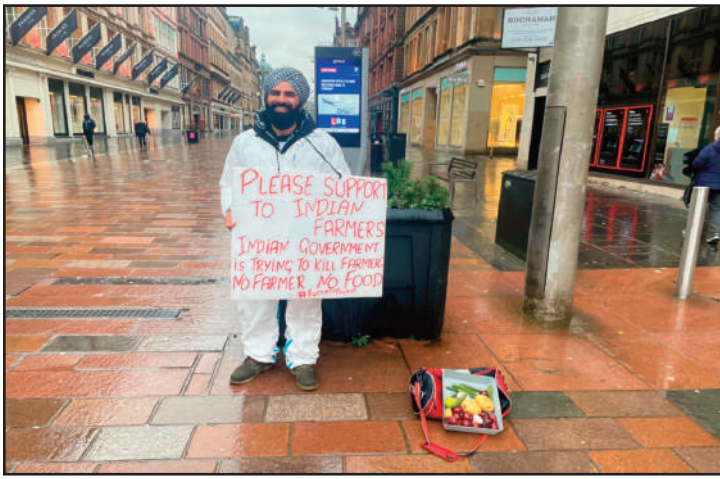 BUCHANAN
PLEASE SUPPORT
TO INDIAN
FARMERS
INDIAN GOVERNMENT
IS TRYING TO KILL FARMERS
NO FARMER NO FOOD